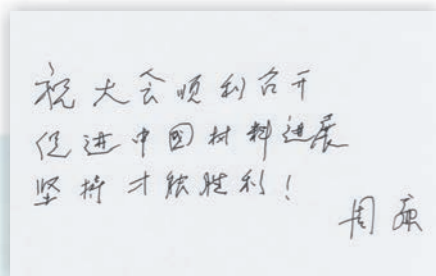 祝大会顺利召开
促进中国材料进展
坚持才能胜利！
周廉